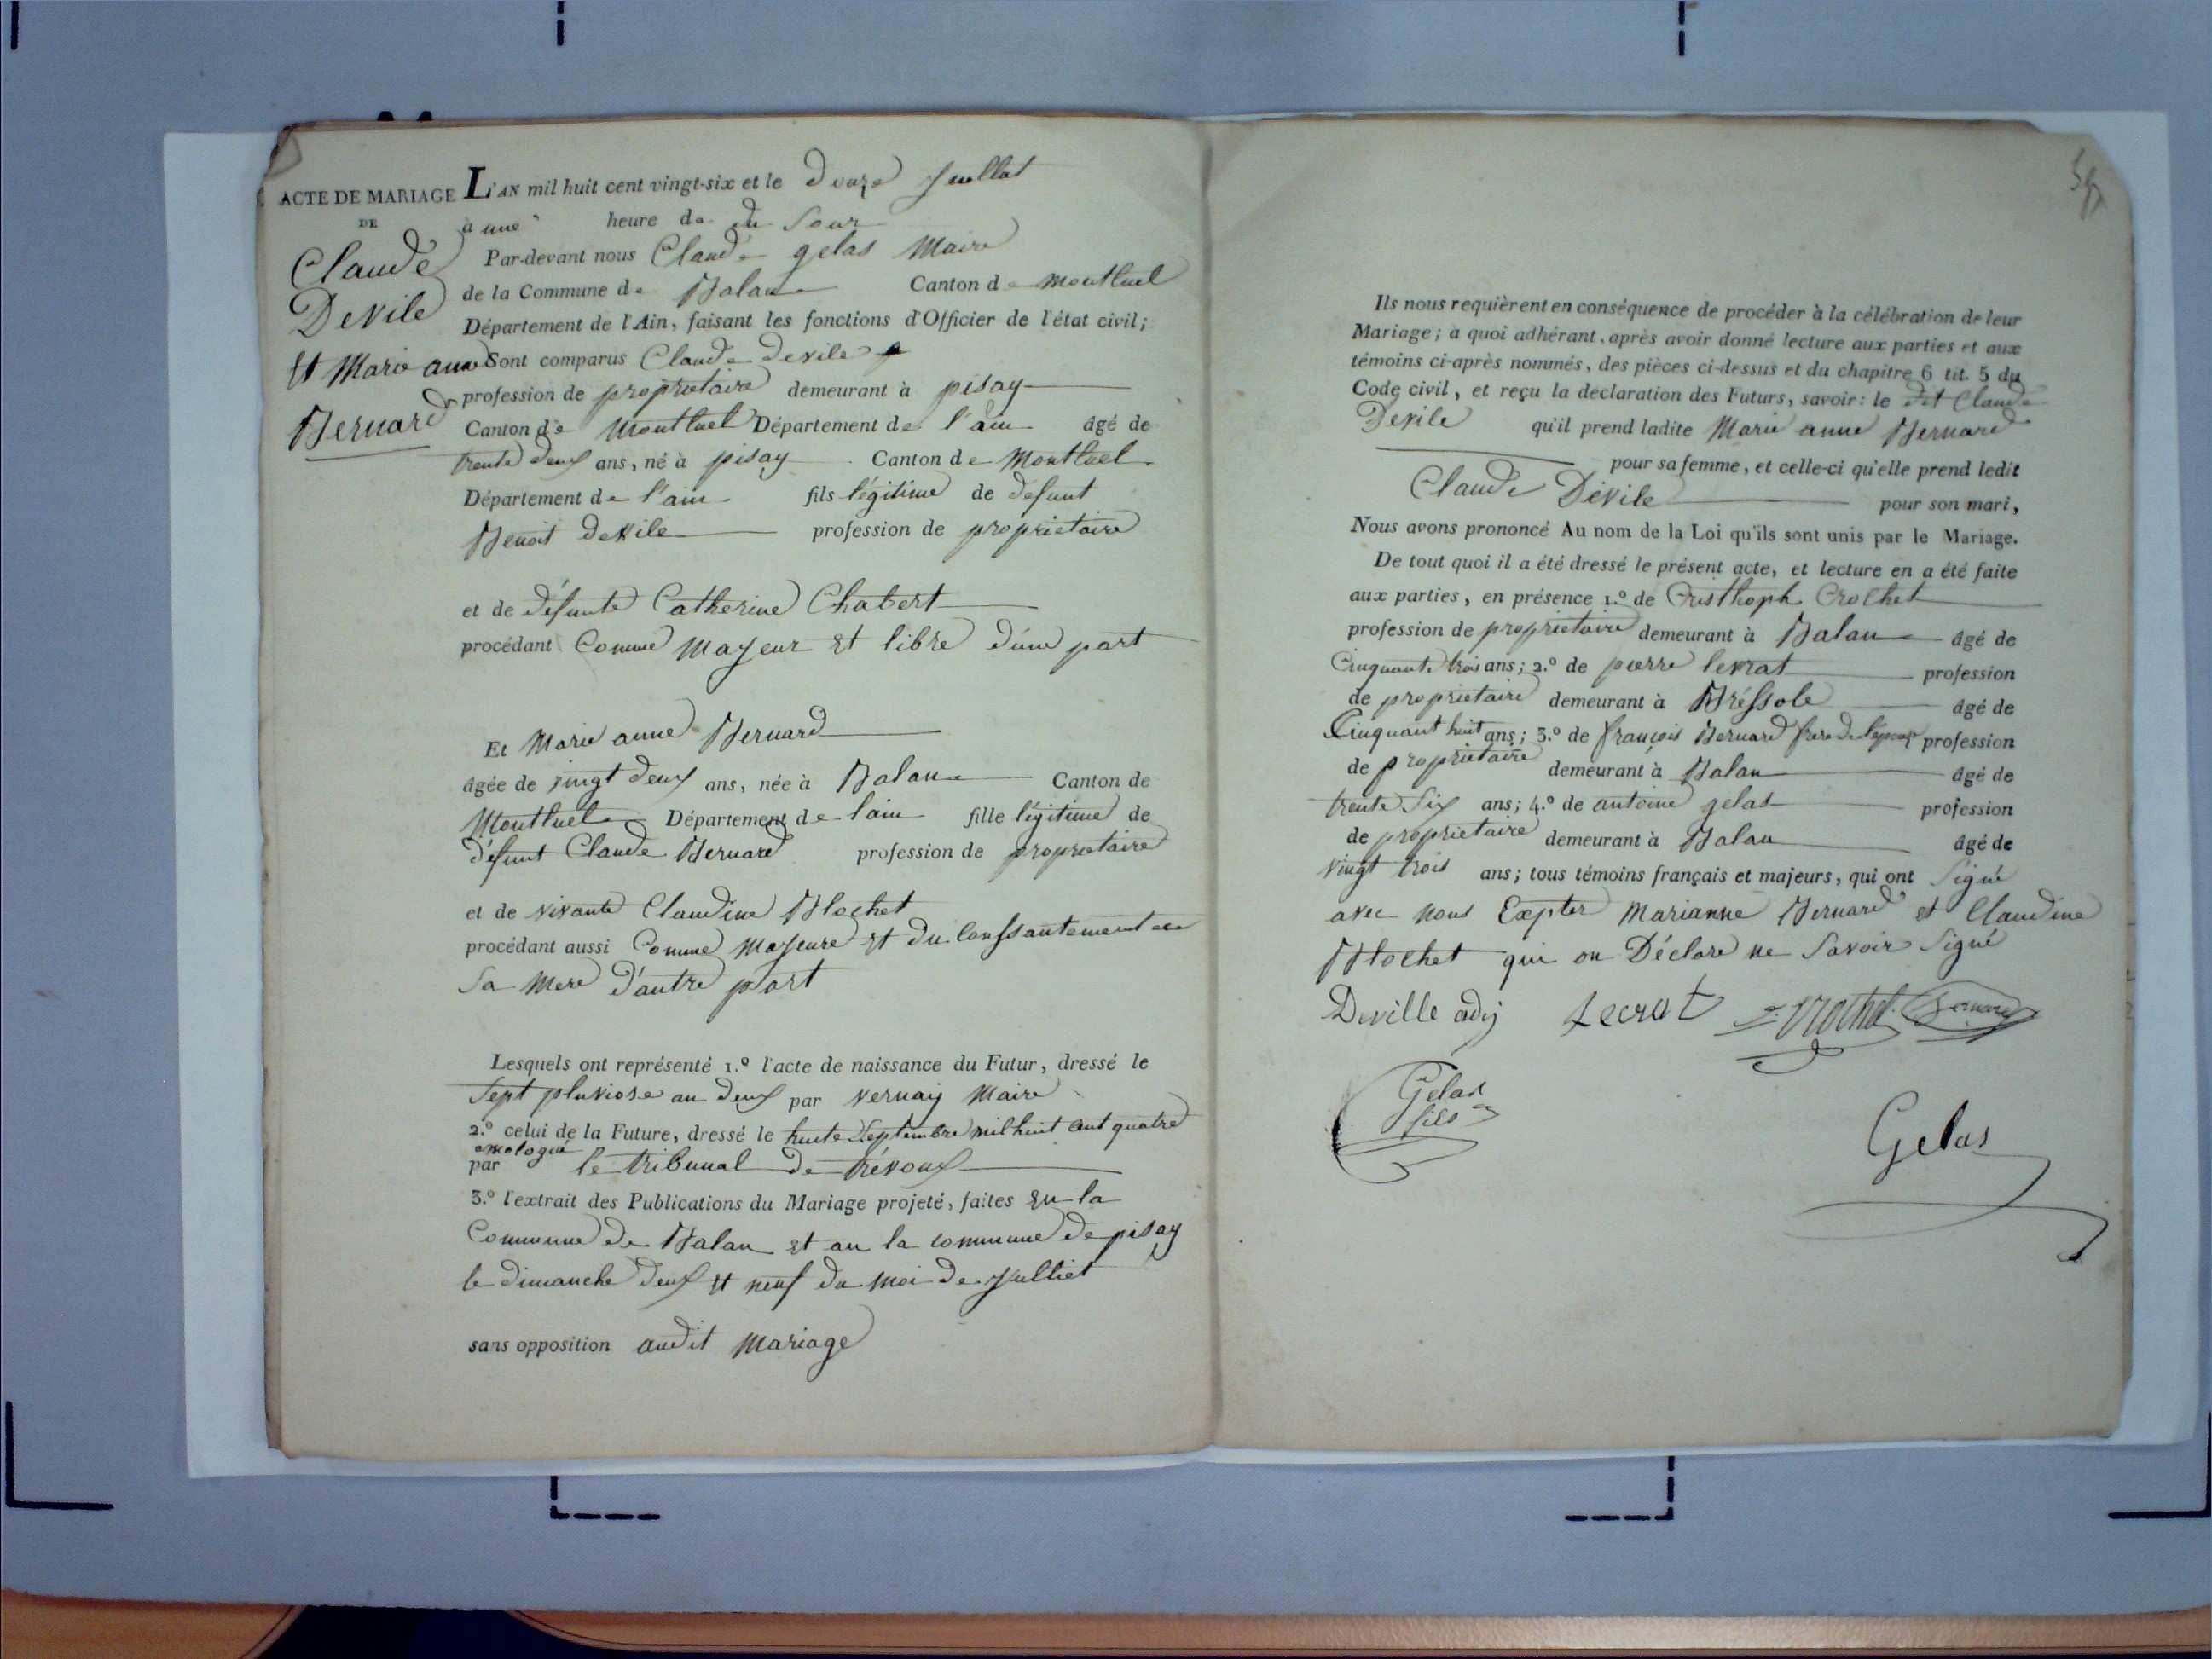 ACTE DE MARIAGE
DE
Claude
Devile
Et Marie anne
Bernard
L'AN mil huit cent vingt-six et le Douze Juellat
à une heure de du Soir
Par-devant nous Claude gelas Maire
de la Commune de Balan Canton de montluel
Département de l'Ain, faisant les fonctions d'Officier de l'état civil;
Sont comparus Claude devile
profession de propriétaire demeurant à pisay
Canton de Montluel Département de l'ain âgé de
trente deux ans, né à pisay Canton de Montluel
Département de l'ain fils légitime de defunt
Benoit devile profession de proprietaire
et de défunte Catherine Chabert
procédant Comme Majeur Et libre d'une part
Et Marie anne Bernard
âgée de vingt deux ans, née à Balan Canton de
Montluel Département de lain fille légitime de
défunt Claude Bernard profession de propriétaire
et de vivante Claudine Blochet
procédant aussi Comme Majeure Et du Conssantement de
Sa Mere d'autre part
Lesquels ont représenté 1.º l'acte de naissance du Futur, dressé le
Sept pluviose an deux par vernay Maire
2.º celui de la Future, dressé le huite Septembre mil huit cent quatre
omologué
par le tribunal de trévoux
3.º l'extrait des Publications du Mariage projeté, faites En la
Commune de Balan Et an la commune de pisay
le dimanche deux Et neuf du moi de Julliet
sans opposition audit Mariage
Ils nous requièrent en conséquence de procéder à la célébration de leur
Mariage; à quoi adhérant, après avoir donné lecture aux parties et aux
témoins ci-après nommés, des pièces ci-dessus et du chapitre 6 tit. 5 du
Code civil, et reçu la declaration des Futurs, savoir: le dit Claude
Devile qu'il prend ladite Marie anne Bernard
pour sa femme, et celle-ci qu'elle prend ledit
Claude Devile pour son mari,
Nous avons prononcé Au nom de la Loi qu'ils sont unis par le Mariage.
De tout quoi il a été dressé le présent acte, et lecture en a été faite
aux parties, en présence 1.º de Cristhoph Crochet
profession de proprietaire demeurant à Balan âgé de
Cinquante trois ans; 2.º de pierre levrat profession
de proprietaire demeurant à Bréssole âgé de
Cinquant huit ans; 3.º de françois Bernard frere de l'epouse profession
de proprietaire demeurant à Balan âgé de
trente Six ans; 4.º de antoine gelas profession
de proprietaire demeurant à Balan âgé de
vingt trois ans; tous témoins français et majeurs, qui ont Signé
avec nous Expter Marianne Bernard et Claudine
Blochet qui on Déclare ne Savoir Signé
Deville adj Levrat Crochet Bernard
Gelas
fils
Gelas